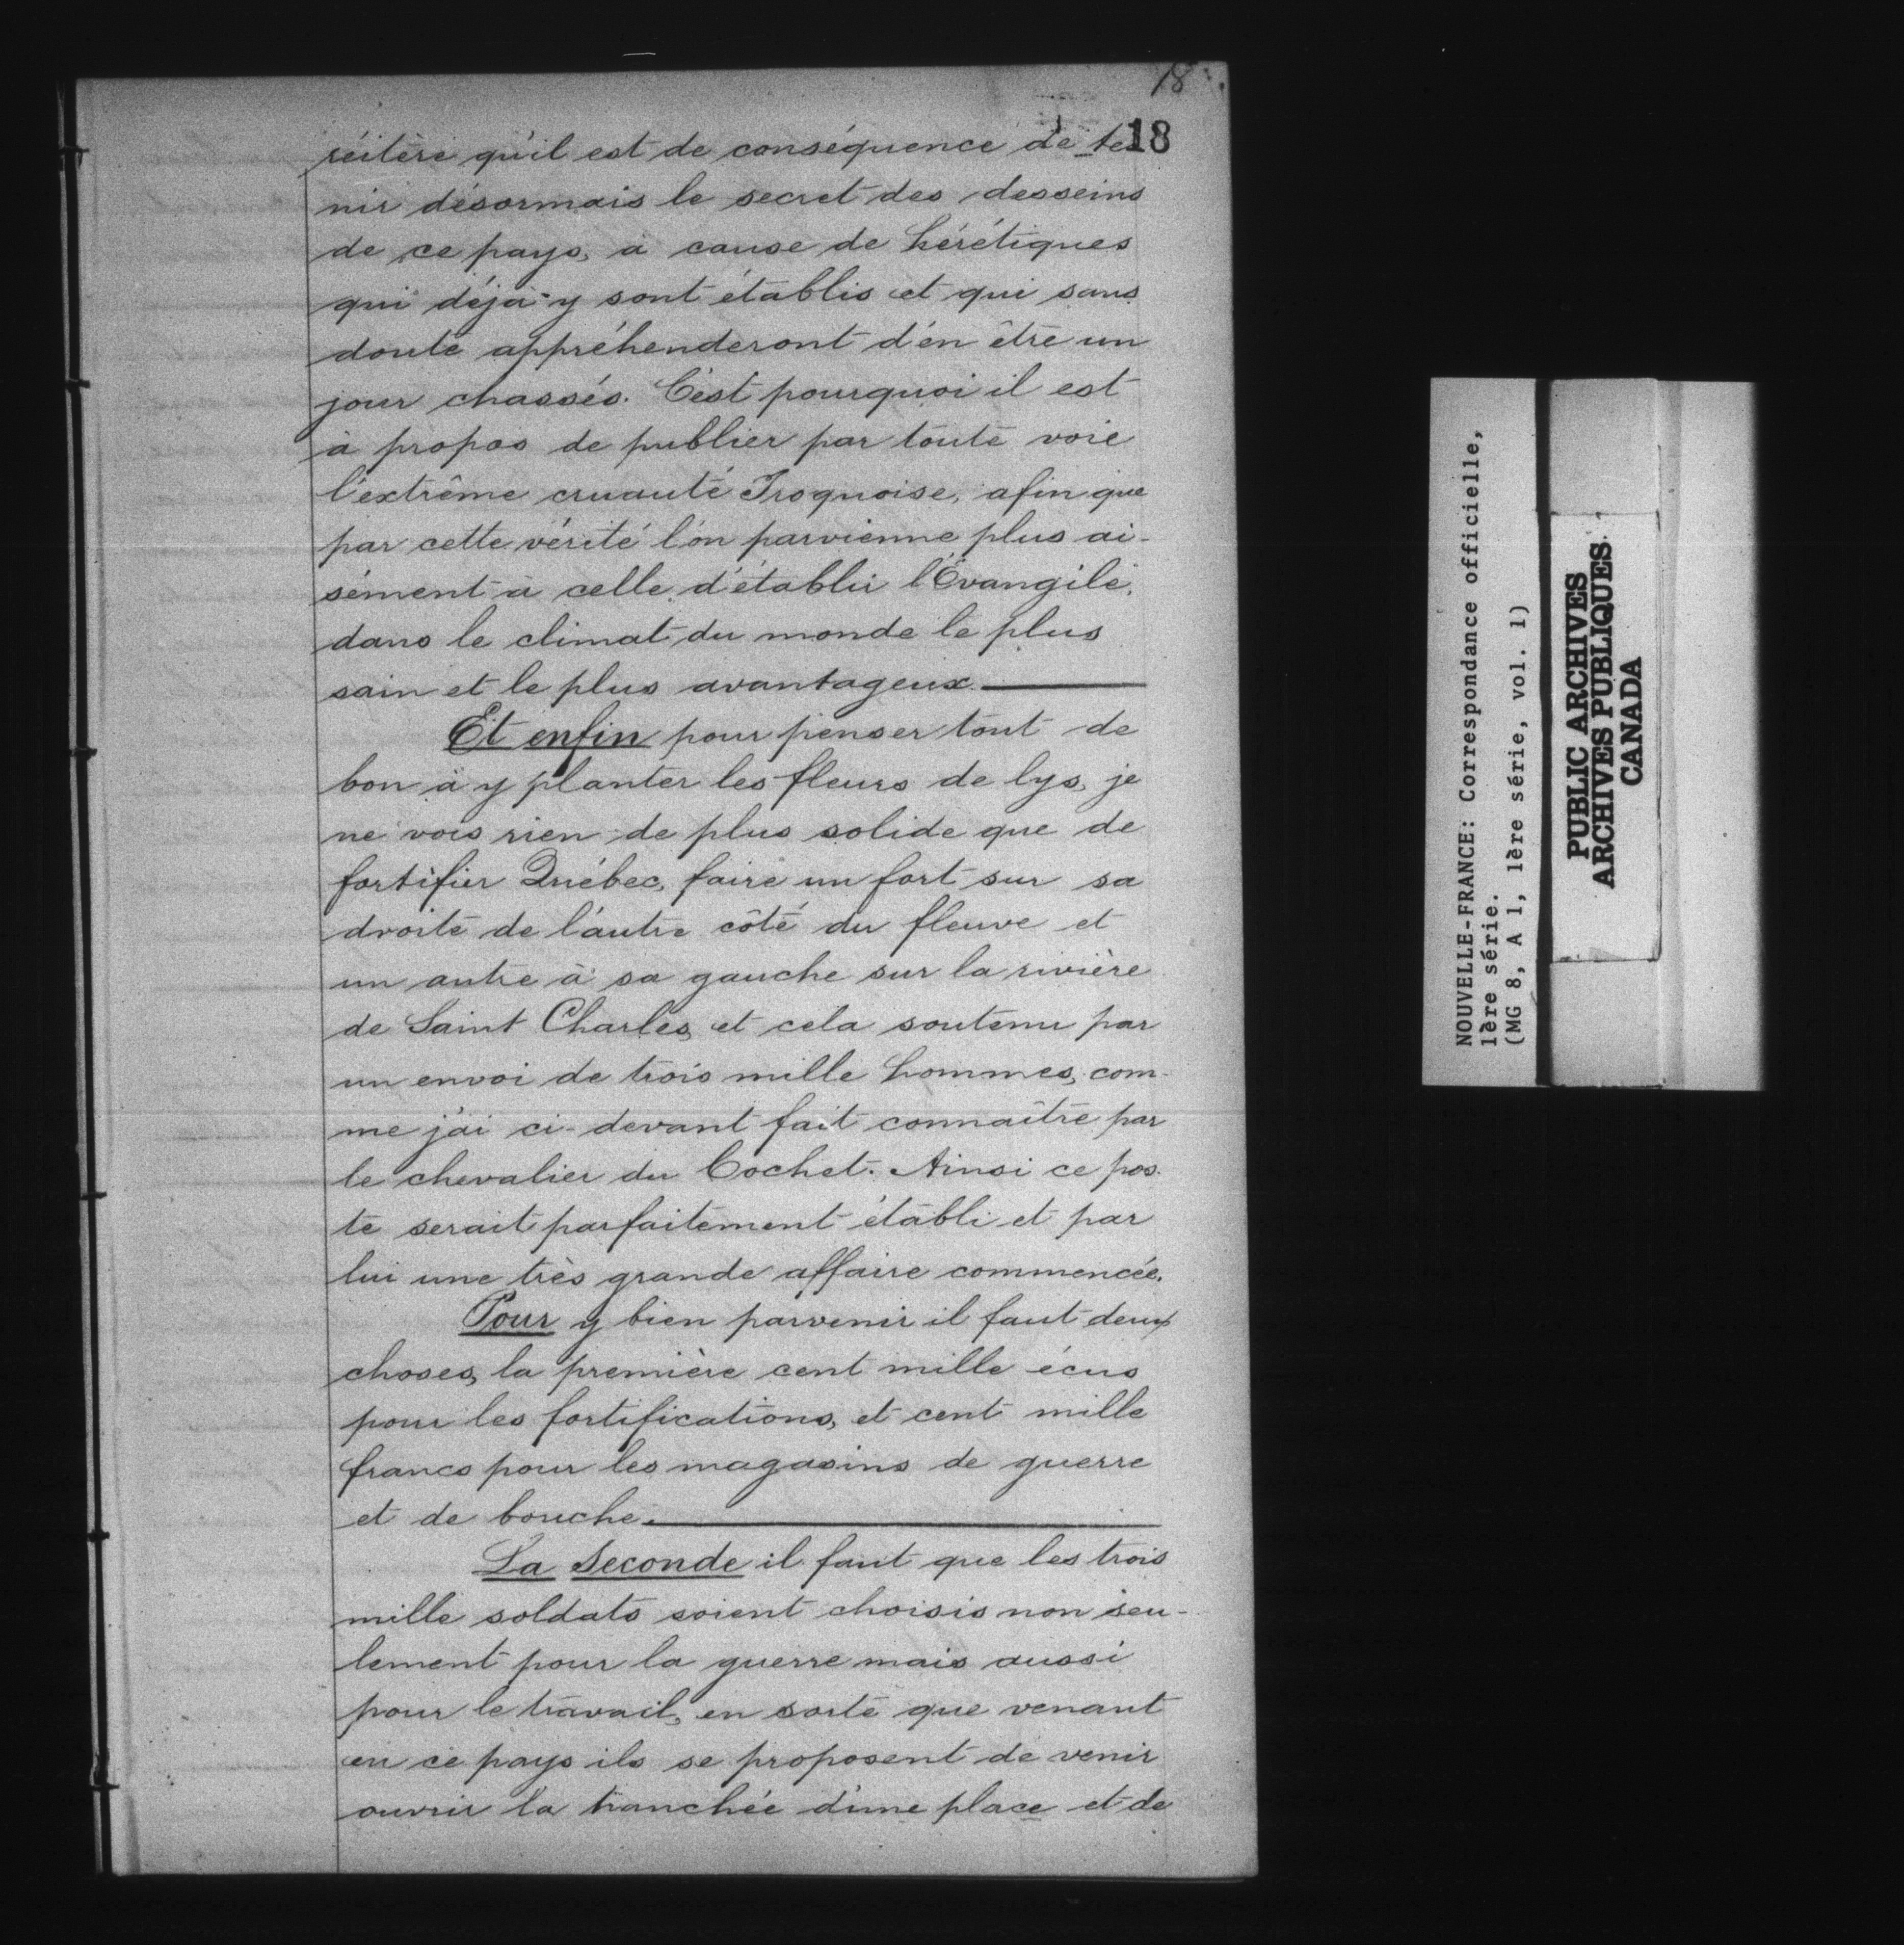 18
18
réitère qu'il est de conséquence de te-
nir désormais le secret des desseins
de ce pays, à cause de hérétiques
qui déjà y sont établis et qui sans
doute appréhenderont d'en être un
jour chassés. C'est pourquoi il est
à propos de publier par toute voie
l'extrême cruauté Iroquoise, afin que
par cette vérité l'on parvienne plus ai-
sément à celle d'établir l'Évangile,
dans le climat du monde le plus
sain et le plus avantageux.
Et enfin pour penser tout de
bon à y planter les fleurs de lys, je
ne vois rien de plus solide que de
fortifier Québec, faire un fort sur sa
droite de l'autre côté du fleuve et
un autre à sa gauche sur la rivière
de Saint Charles, et cela soutenu par
un envoi de trois mille hommes, com-
me j'ai ci-devant fait connaître par
le chevalier du Cochet. Ainsi ce pos-
te serait parfaitement établi et par
lui une très grande affaire commencée.
Pour y bien parvenir il faut deux
choses, la première cent mille écus
pour les fortifications, et cent mille
francs pour les magasins de guerre
et de bouche.
La Seconde il faut que les trois
mille soldats soient choisis non seu-
lement pour la guerre mais aussi
pour le travail, en sorte que venant
en ce pays ils se proposent de venir
ouvrir la tranchée d'une place et de
NOUVELLE-FRANCE: Correspondance officielle,
1ère série.
(MG 8, A 1, 1ère série, vol. 1)
PUBLIC ARCHIVES
ARCHIVES PUBLIQUES
CANADA